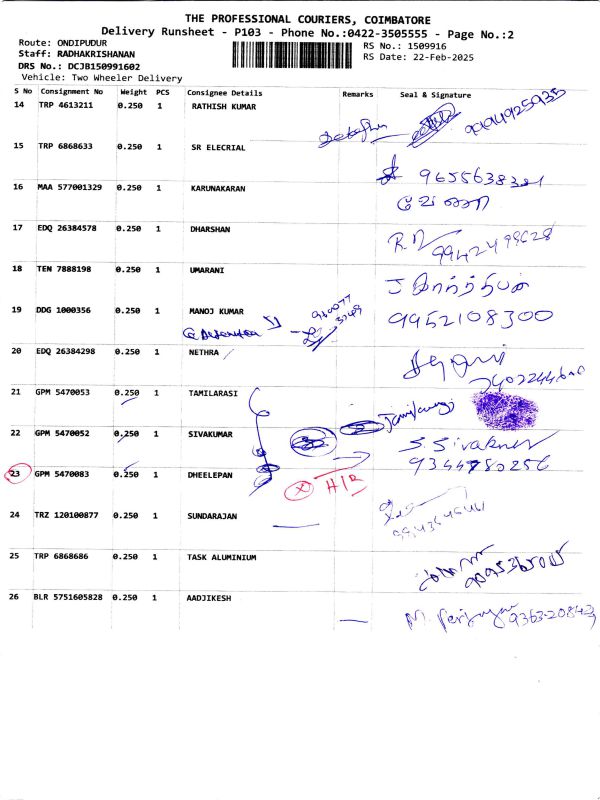 THE PROFESSIONAL COURIERS, COIMBATORE
Delivery Runsheet - P103 - Phone No.:0422-3505555 - Page No.:2
Route: ONDIPUDUR
RS No.: 1509916
Staff: RADHAKRISHANAN
RS Date: 22-Feb-2025
DRS No.: DCJB150991602
Vehicle: Two Wheeler Delivery
S No Consignment No Weight PCS Consignee Details Remarks Seal & Signature
14 TRP 4613211 0.250 1 RATHISH KUMAR
15 TRP 6868633 0.250 1 SR ELECRIAL
9655638381
16 MAA 577001329 0.250 1 KARUNAKARAN
17 EDQ 26384578 0.250 1 DHARSHAN
18 TEN 7888198 0.250 1 UMARANI
19 DDG 1000356 0.250 1 MANOJ KUMAR
9952108300
20 EDQ 26384298 0.250 1 NETHRA
21 GPM 5470053 0.250 1 TAMILARASI
22 GPM 5470052 0.250 1 SIVAKUMAR
S. Sivakumar
9344780256
23 GPM 5470083 0.250 1 DHEELEPAN
X H/R
24 TRZ 120100877 0.250 1 SUNDARAJAN
25 TRP 6868686 0.250 1 TASK ALUMINIUM
26 BLR 5751605828 0.250 1 AADJIKESH
936320843